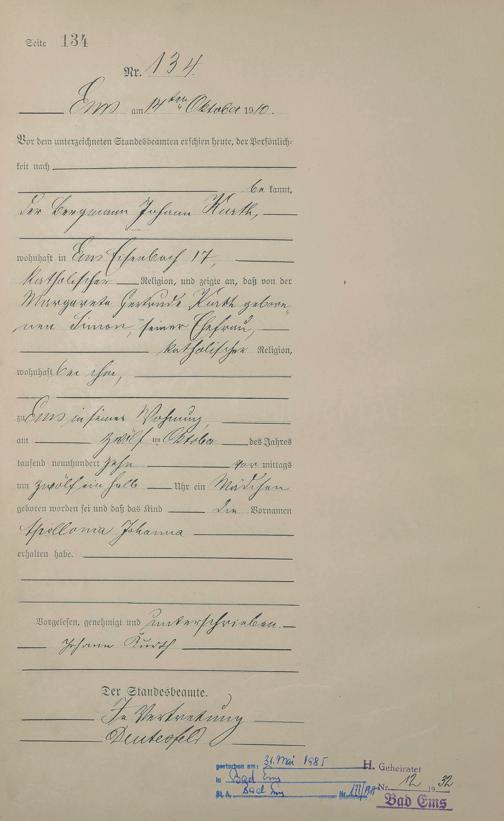 Seite 134
Nr. 134.
Ems am 14ten Oktober 1910.
Vor dem unterzeichneten Standesbeamten erschien heute, der Persönlich-
keit nach
be kannt,
der Bergmann Johann Kurth,
wohnhaft in Ems Eisenbach 17,
katholischer Religion, und zeigte an, daß von der
Margareta Gertrude Kurth gebore-
nen Simon, seiner Ehefrau,
katholischer Religion,
wohnhaft bei ihm,
zu Ems in seiner Wohnung
am zwölften Oktober des Jahres
tausend neunhundert zehn vor mittags
um zwölf ein halb Uhr ein Mädchen
geboren worden sei und daß das Kind die Vornamen
Apollonia Johanna
erhalten habe.
Vorgelesen, genehmigt und unterschrieben.
Johann Kurth
Der Standesbeamte.
In Vertretung
gestorben am: 31. Mai 1985
in Bad Ems
St. A. Bad Ems
H. Geheiratet
Nr. 12 1932
Bad Ems